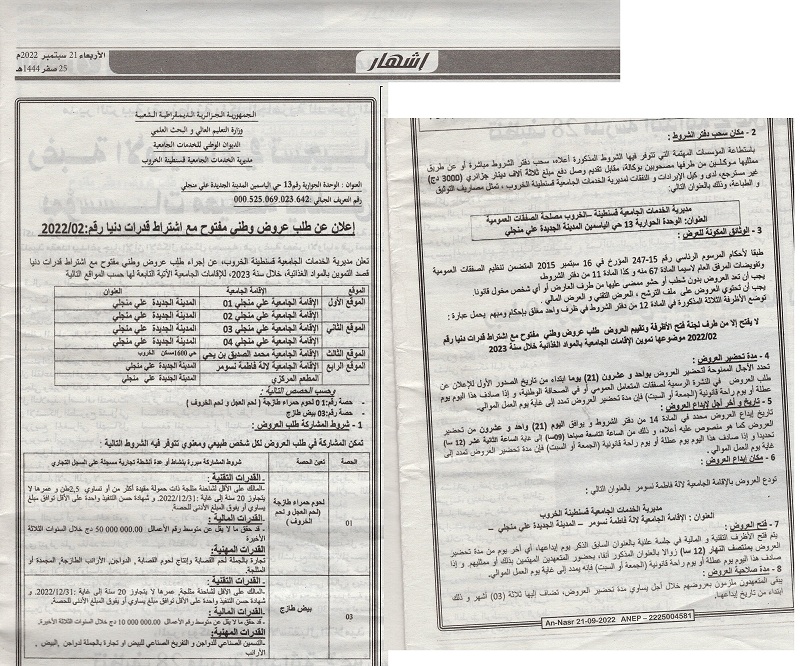 إشهار
الأربعاء 21 سبتمبر 2022م
25 صفر 1444هـ
الجمهورية الجزائرية الديمقراطية الشعبية
وزارة التعليم العالي و البحث العلمي
الديوان الوطني للخدمات الجامعية
مديرية الخدمات الجامعية قسنطينة الخروب
العنوان : الوحدة الحوارية رقم13 حي الياسمين المدينة الجديدة علي منجلي
رقم التعريف الجبائي: 000.525.069.023.642
إعلان عن طلب عروض وطني مفتوح مع اشتراط قدرات دنيا رقم:2022/02
تعلن مديرية الخدمات الجامعية قسنطينة الخروب، عن إجراء طلب عروض وطني مفتوح مع اشتراط قدرات دنيا
قصد التموين بالمواد الغذائية، خلال سنة 2023، للإقامات الجامعية الآتية التابعة لها حسب المواقع التالية
الموقع الإقامة الجامعية العنوان
الموقع الأول الإقامة الجامعية علي منجلي 01 المدينة الجديدة علي منجلي
الإقامة الجامعية علي منجلي 02 المدينة الجديدة علي منجلي
الموقع الثاني الإقامة الجامعية علي منجلي 03 المدينة الجديدة علي منجلي
الإقامة الجامعية علي منجلي 04 المدينة الجديدة علي منجلي
الموقع الثالث الإقامة الجامعية محمد الصديق بن يحي حي 1600مسكن الخروب
الموقع الرابع الإقامة الجامعية لالة فاطمة نسومر المدينة الجديدة علي منجلي
المطعم المركزي المدينة الجديدة علي منجلي
وحسب الحصص التالية :
- حصة رقم:01 لحوم حمراء طازجة ( لحم العجل و لحم الخروف )
- حصة رقم:03 بيض طازج
1 - شروط المشاركة طلب العروض :
تمكن المشاركة في طلب العروض لكل شخص طبيعي ومعنوي تتوفر فيه الشروط التالية :
الحصة تعين الحصة شروط المشاركة مبررة بنشاط أو عدة أنشطة تجارية مسجلة على السجل التجاري
01 لحوم حمراء طازجة (لحم العجل و لحم الخروف )
- القدرات التقنية :
-المالك على الأقل لشاحنة مثلجة ذات حمولة مفيدة أكثر من أو تساوي 2,5طن و عمرها لا
يتجاوز 20 سنة إلى غاية :2022/12/31. و شهادة حسن التنفيذ واحدة على الأقل توافق مبلغ
يساوي أو يفوق المبلغ الأدنى للحصة.
- القدرات المالية :
- قد حقق ما لا يقل عن متوسط رقم الأعمال 50 000 000.00 دج خلال السنوات الثلاثة
الأخيرة
-القدرات المهنية:
تجارة بالجملة لحم القصابة وإنتاج لحوم القصابة , الدواجن, الأرانب الطازجة, المجمدة أو
المثلجة.
03 بيض طازج
- القدرات التقنية :
-المالك على الأقل لشاحنة مثلجة, عمرها لا يتجاوز 20 سنة إلى غاية :2022/12/31. و
شهادة حسن التنفيذ واحدة على الأقل توافق مبلغ يساوي أو يفوق المبلغ الأدنى للحصة.
-القدرات المالية :
- قد حقق ما لا يقل عن متوسط رقم الأعمال 10 000 000.00 دج خلال السنوات الثلاثة الأخيرة.
-القدرات المهنية:
-التسمين الصناعي للدواجن و التفريخ الصناعي للبيض او تجارة بالجملة لدواجن ,البيض ,
الأرانب
2 - مكان سحب دفتر الشروط :
باستطاعة المؤسسات المهتمة التي تتوفر فيها الشروط المذكورة أعلاه، سحب دفتر الشروط مباشرة أو عن طريق
ممثليها موكلسين من طرفها مصحوبين بوكالة، مقابل تقديم وصل دفع مبلغ ثلاثة آلاف دينار جزائري (3000 دج)
غير مسترجع، لدى و كيل الإيرادات و النفقات لمديرية الخدمات الجامعية قسنطينة الخروب ، تمثل مصاريف التوثيق
و الطباعة، وذلك بالعنوان التالي:
مديرية الخدمات الجامعية قسنطينة –الخروب مصلحة الصفقات العمومية
العنوان: الوحدة الحوارية 13 حي الياسمين المدينة الجديدة علي منجلي
3 - الوثائق المكونة للعرض :
طبقا لأحكام المرسوم الرئاسي رقم 15-247 المؤرخ في 16 سبتمبر 2015 المتضمن تنظيم الصفقات العمومية
وتفويضات المرفق العام لاسيما المادة 67 منه و كذا المادة 11 من دفتر الشروط.
يجب أن تعد العروض بدون شطب أو حشو ممضى عليها من طرف العارض أو أي شخص مخول قانونا.
يجب أن تحتوي العروض على ملف الترشح ، العرض التقني و العرض المالي .
توضع الأظرفة الثلاثة المذكورة في المادة 12 من دفتر الشروط في ظرف واحد مغلق بإحكام ومبهم يحمل عبارة :
لا يفتح إلا من طرف لجنة فتح الأظرفة وتقييم العروض طلب عروض وطني مفتوح مع اشتراط قدرات دنيا رقم
2022/02 موضوعها تموين الإقامات الجامعية بالمواد الغذائية خلال سنة 2023
4 - مدة تحضير العروض :
تحدد الآجال الممنوحة لتحضير العروض بواحد و عشرون (21) يوما ابتداء من تاريخ الصدور الأول للإعلان عن
طلب العروض في النشرة الرسمية لصفقات المتعامل العمومي أو في الصحافة الوطنية، و إذا صادف هذا اليوم يوم
عطلة أو يوم راحة قانونية (الجمعة أو السبت) فإن مدة تحضير العروض تمدد إلى غاية يوم العمل الموالي.
5 - تاريخ و آخر أجل لإيداع العروض :
تاريخ إيداع العروض محدد في المادة 14 من دفتر الشروط و يوافق اليوم (21) واحد و عشرون من تحضير
العروض كما هو منصوص عليه أعلاه، و ذلك من الساعة التاسعة صباحا (09سا) إلى غاية الساعة الثانية عشر (12 سا)
تحديدا و إذا صادف هذا اليوم يوم عطلة أو يوم راحة قانونية (الجمعة أو السبت) فإن مدة تحضير العروض تمدد إلى
غاية يوم العمل الموالي.
6 - مكان إيداع العروض :
تودع العروض بالإقامة الجامعية لالة فاطمة نسومر بالعنوان التالي :
مديرية الخدمات الجامعية قسنطينة الخروب
العنوان : الإقامة الجامعية لالة فاطمة نسومر – المدينة الجديدة علي منجلي –
7 - فتح العروض :
يتم فتح الأظرف التقنية و المالية في جلسة علنية بالعنوان السابق الذكر يوم إيداعها، أي آخر يوم من مدة تحضير
العروض بمنتصف النهار (12 سا) زوالا بالعنوان المذكور آنفا، بحضور المتعهدين المهتمين بذلك أو ممثليهم. و إذا
صادف هذا اليوم يوم عطلة أو يوم راحة قانونية (الجمعة أو السبت) فإنه يمدد إلى غاية يوم العمل الموالي.
8 - مدة صلاحية العروض :
يبقى المتعهدون ملزمون بعروضهم خلال أجل يساوي مدة تحضير العروض، تضاف إليها ثلاثة (03) أشهر و ذلك
ابتداء من تاريخ إيداعها.
An-Nasr 21-09-2022 ANEP – 2225004581